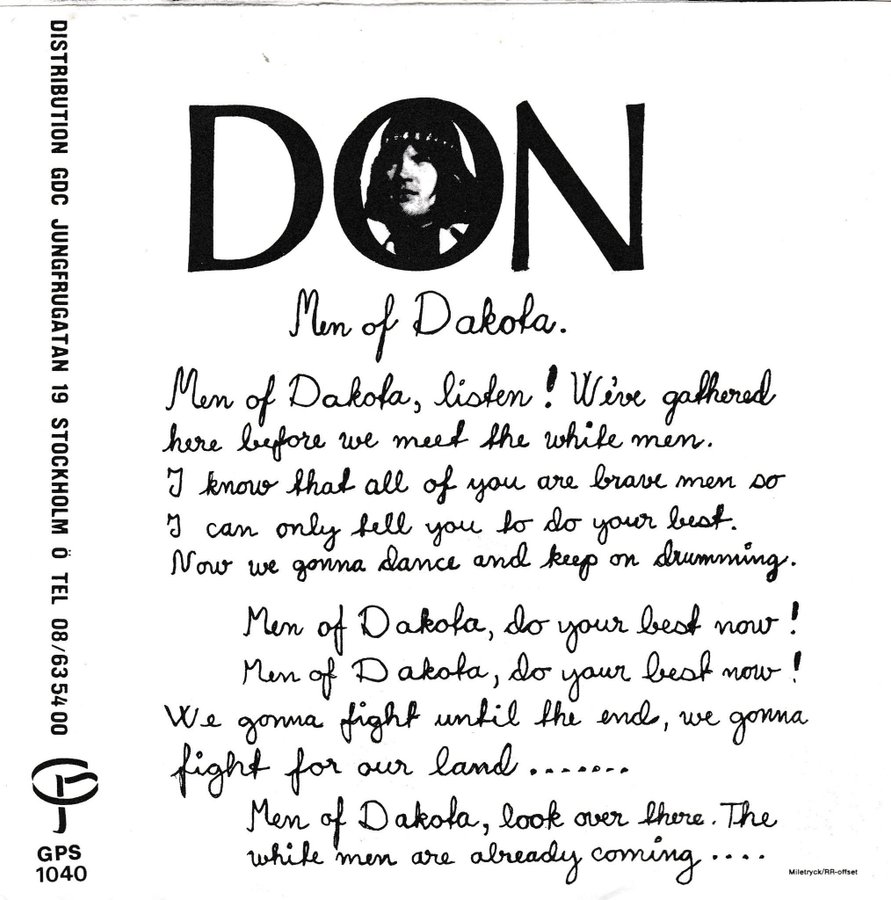 DISTRIBUTION GDC JUNGFRUGATAN 19 STOCKHOLM Ö TEL 08/63 54 00
GPS
1040
DON
Men of Dakota.
Men of Dakota, listen! We've gathered
here before we meet the white men.
I know that all of you are brave men so
I can only tell you to do your best.
Now we gonna dance and keep on drumming.
Men of Dakota, do your best now!
Men of Dakota, do your best now!
We gonna fight until the end, we gonna
fight for our land .......
Men of Dakota, look over there. The
white men are already coming ....
Miletryck/RR-offset